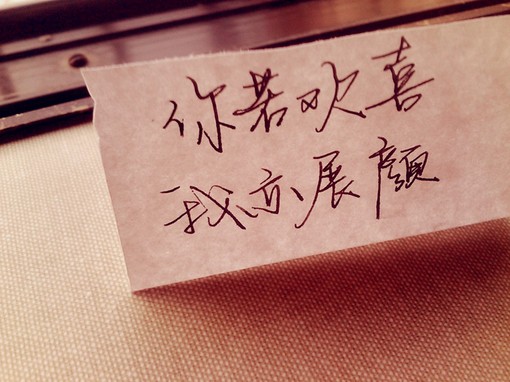 你若欢喜
我亦展顔